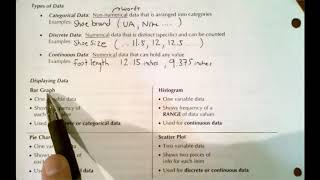 Types of Data
words
• Categorical Data: Non-numerical data that is arranged into categories
Examples: Shoe brand (UA, Nike .....)
• Discrete Data: Numerical data that is distinct (specific) and can be counted
Examples: Shoe Size (.. 11.5, 12, 12.5 .....)
• Continuous Data: Numerical data that can hold any value
Examples: Foot length 12.15 inches, 9.375 inches
Displaying Data
Bar Graph
• One variable data
• Shows frequency of
each
• Used for discrete or categorical data
Histogram
• One variable data
• Shows frequency of a
RANGE of data values
• Used for continuous data
Pie Char
• One
• Sho
ca
• Used
Scatter Plot
• Two variable data
• Shows two pieces of
info for each item
• Used for discrete or continuous